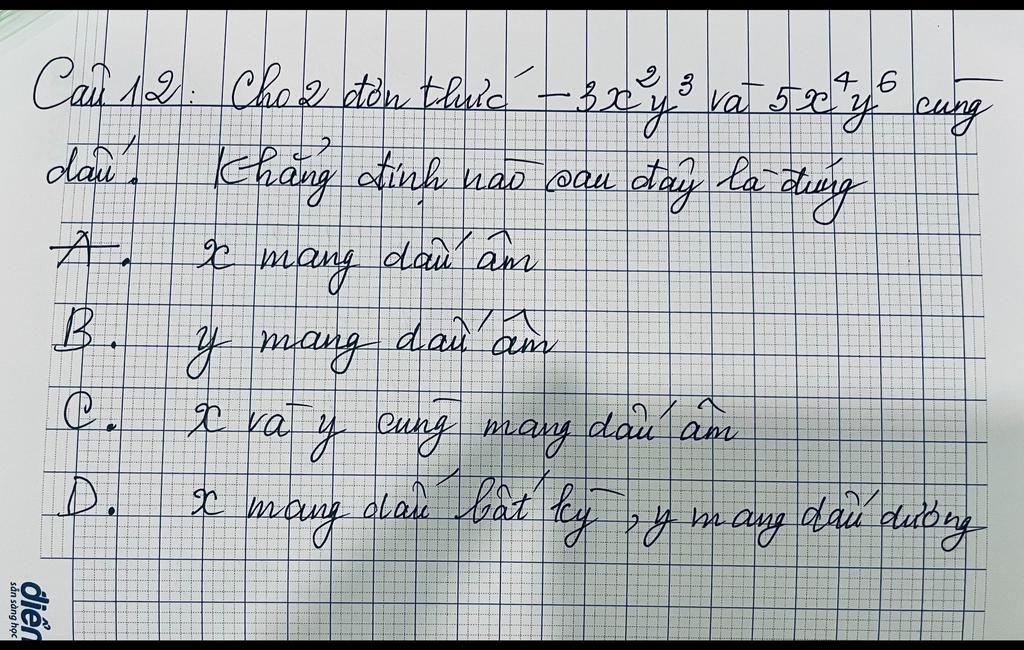 Câu 12: Cho 2 đơn thức -3x²y³ và 5x⁴y⁶ cùng
dấu. Khẳng định nào sau đây là đúng
A. x mang dấu âm
B. y mang dấu âm
C. x và y cùng mang dấu âm
D. x mang dấu bất kỳ, y mang dấu dương
điểm
sẵn sàng học